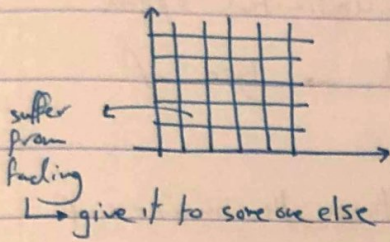 suffer
from
fading
give it to some one else